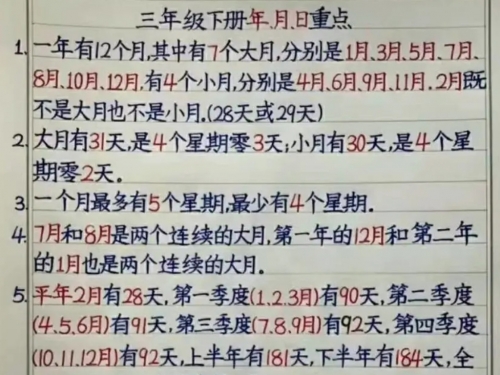 三年级下册年、月、日重点
1. 一年有12个月,其中有7个大月,分别是1月、3月、5月、7月、
8月、10月、12月,有4个小月,分别是4月、6月、9月、11月.2月既
不是大月也不是小月.(28天或29天)
2. 大月有31天,是4个星期零3天;小月有30天,是4个星
期零2天.
3. 一个月最多有5个星期,最少有4个星期.
4. 7月和8月是两个连续的大月,第一年的12月和第二年
的1月也是两个连续的大月.
5. 平年2月有28天,第一季度(1.2.3月)有90天,第二季度
(4.5.6月)有91天,第三季度(7.8.9月)有92天,第四季度
(10.11.12月)有92天,上半年有181天,下半年有184天,全